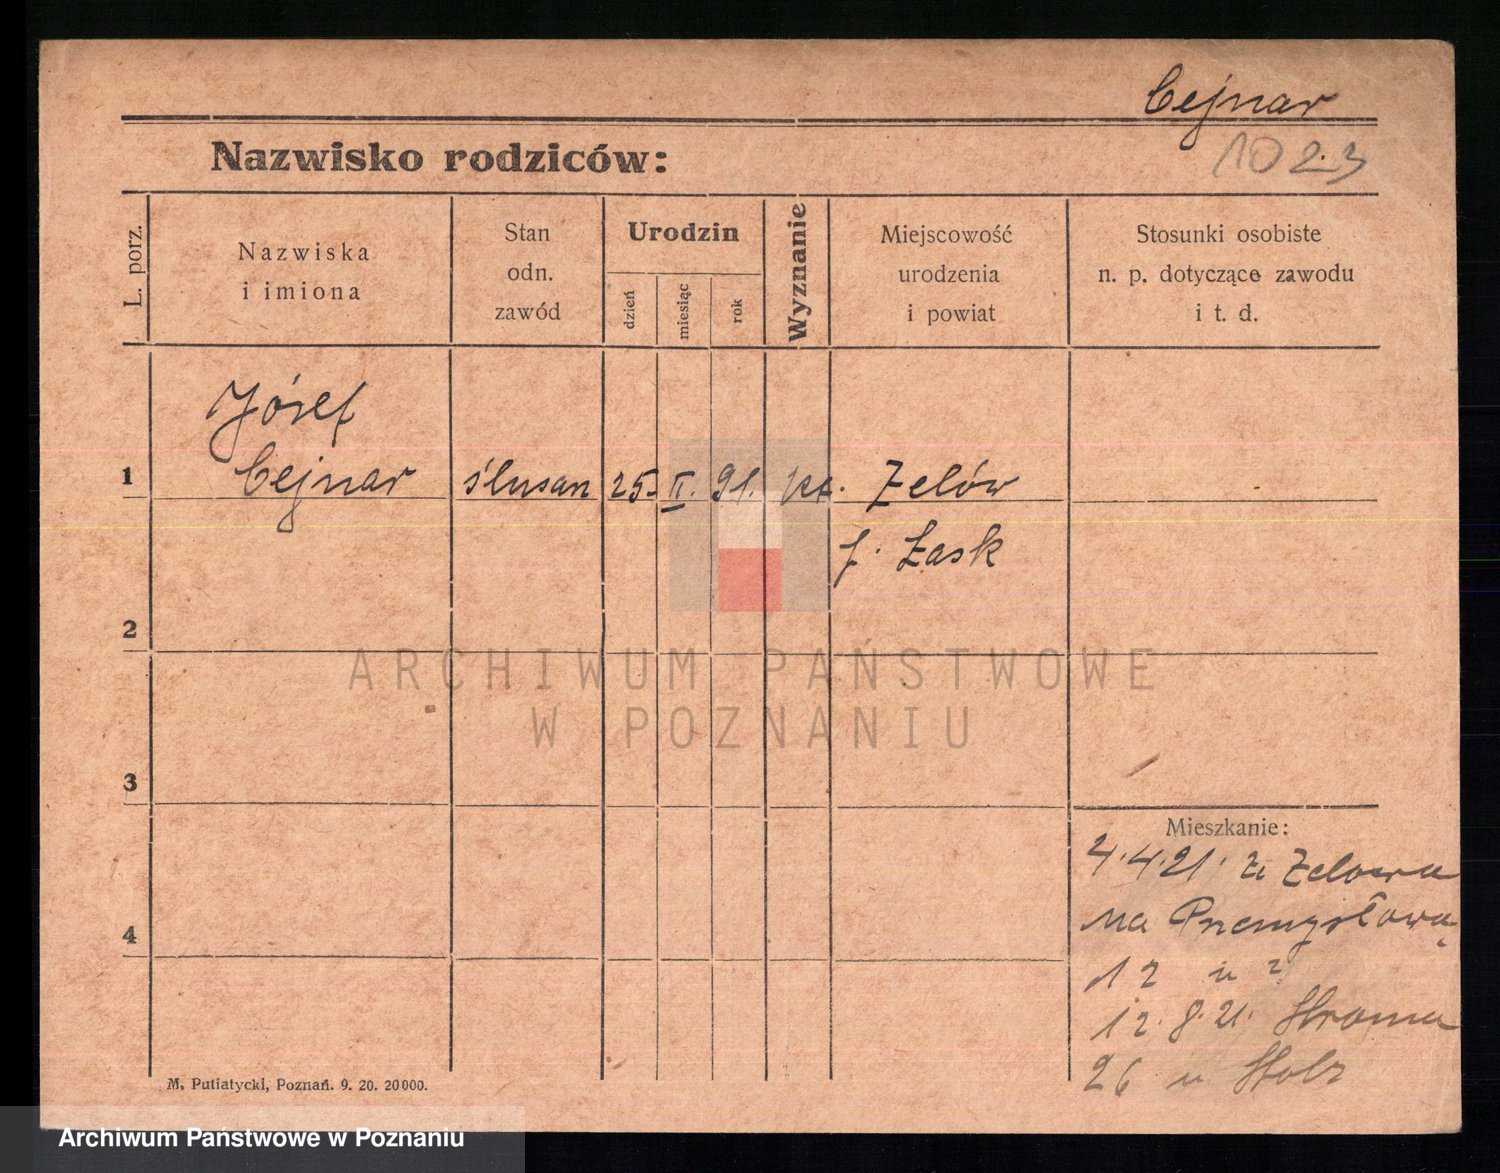 Cejnar
1023
Nazwisko rodziców:
L. porz.
Nazwiska
i imiona
Stan
odn.
zawód
Urodzin
dzień
miesiąc
rok
Wyznanie
Miejscowość
urodzenia
i powiat
Stosunki osobiste
n. p. dotyczące zawodu
i t. d.
Józef
1 Cejnar ślusarz 25. II. 91. Zelów
Łask
2
3
4
Mieszkanie:
4.4.21. z Zelowa
na Przemysłową
12 u
12.8.21.
26 u
M. Putiatycki, Poznań. 9. 20. 20000.
ARCHIWUM PAŃSTWOWE
W POZNANIU
Archiwum Państwowe w Poznaniu